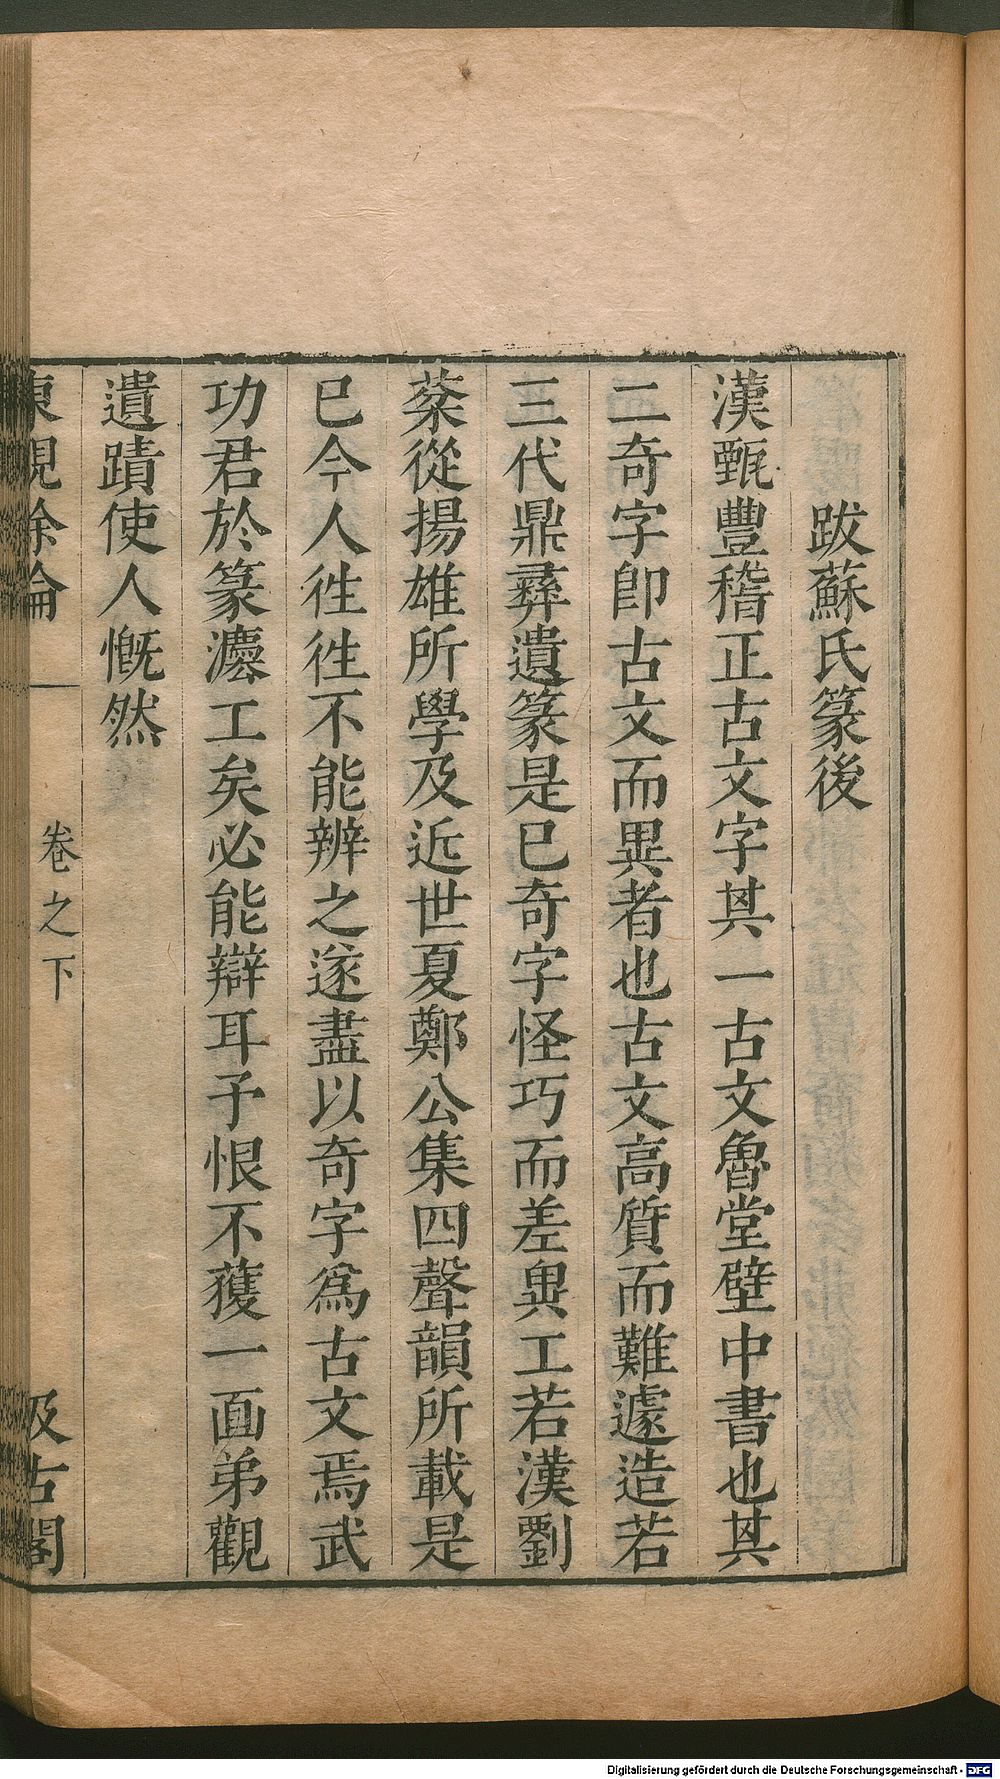 跋蘇氏篆後
漢甄豐稽正古文字其一古文魯堂壁中書也其
二奇字即古文而異者也古文高質而難遽造若
三代鼎彛遺篆是已奇字怪巧而差異工若漢劉
棻從揚雄所學及近世夏鄭公集四聲韻所載是
已今人徃徃不能辨之遂盡以奇字爲古文焉武
功君於篆灋工矣必能辯耳予恨不獲一面弟觀
遺蹟使人慨然
東觀餘論 卷之下 汲古閣
Digitalisierung gefördert durch die Deutsche Forschungsgemeinschaft - DFG